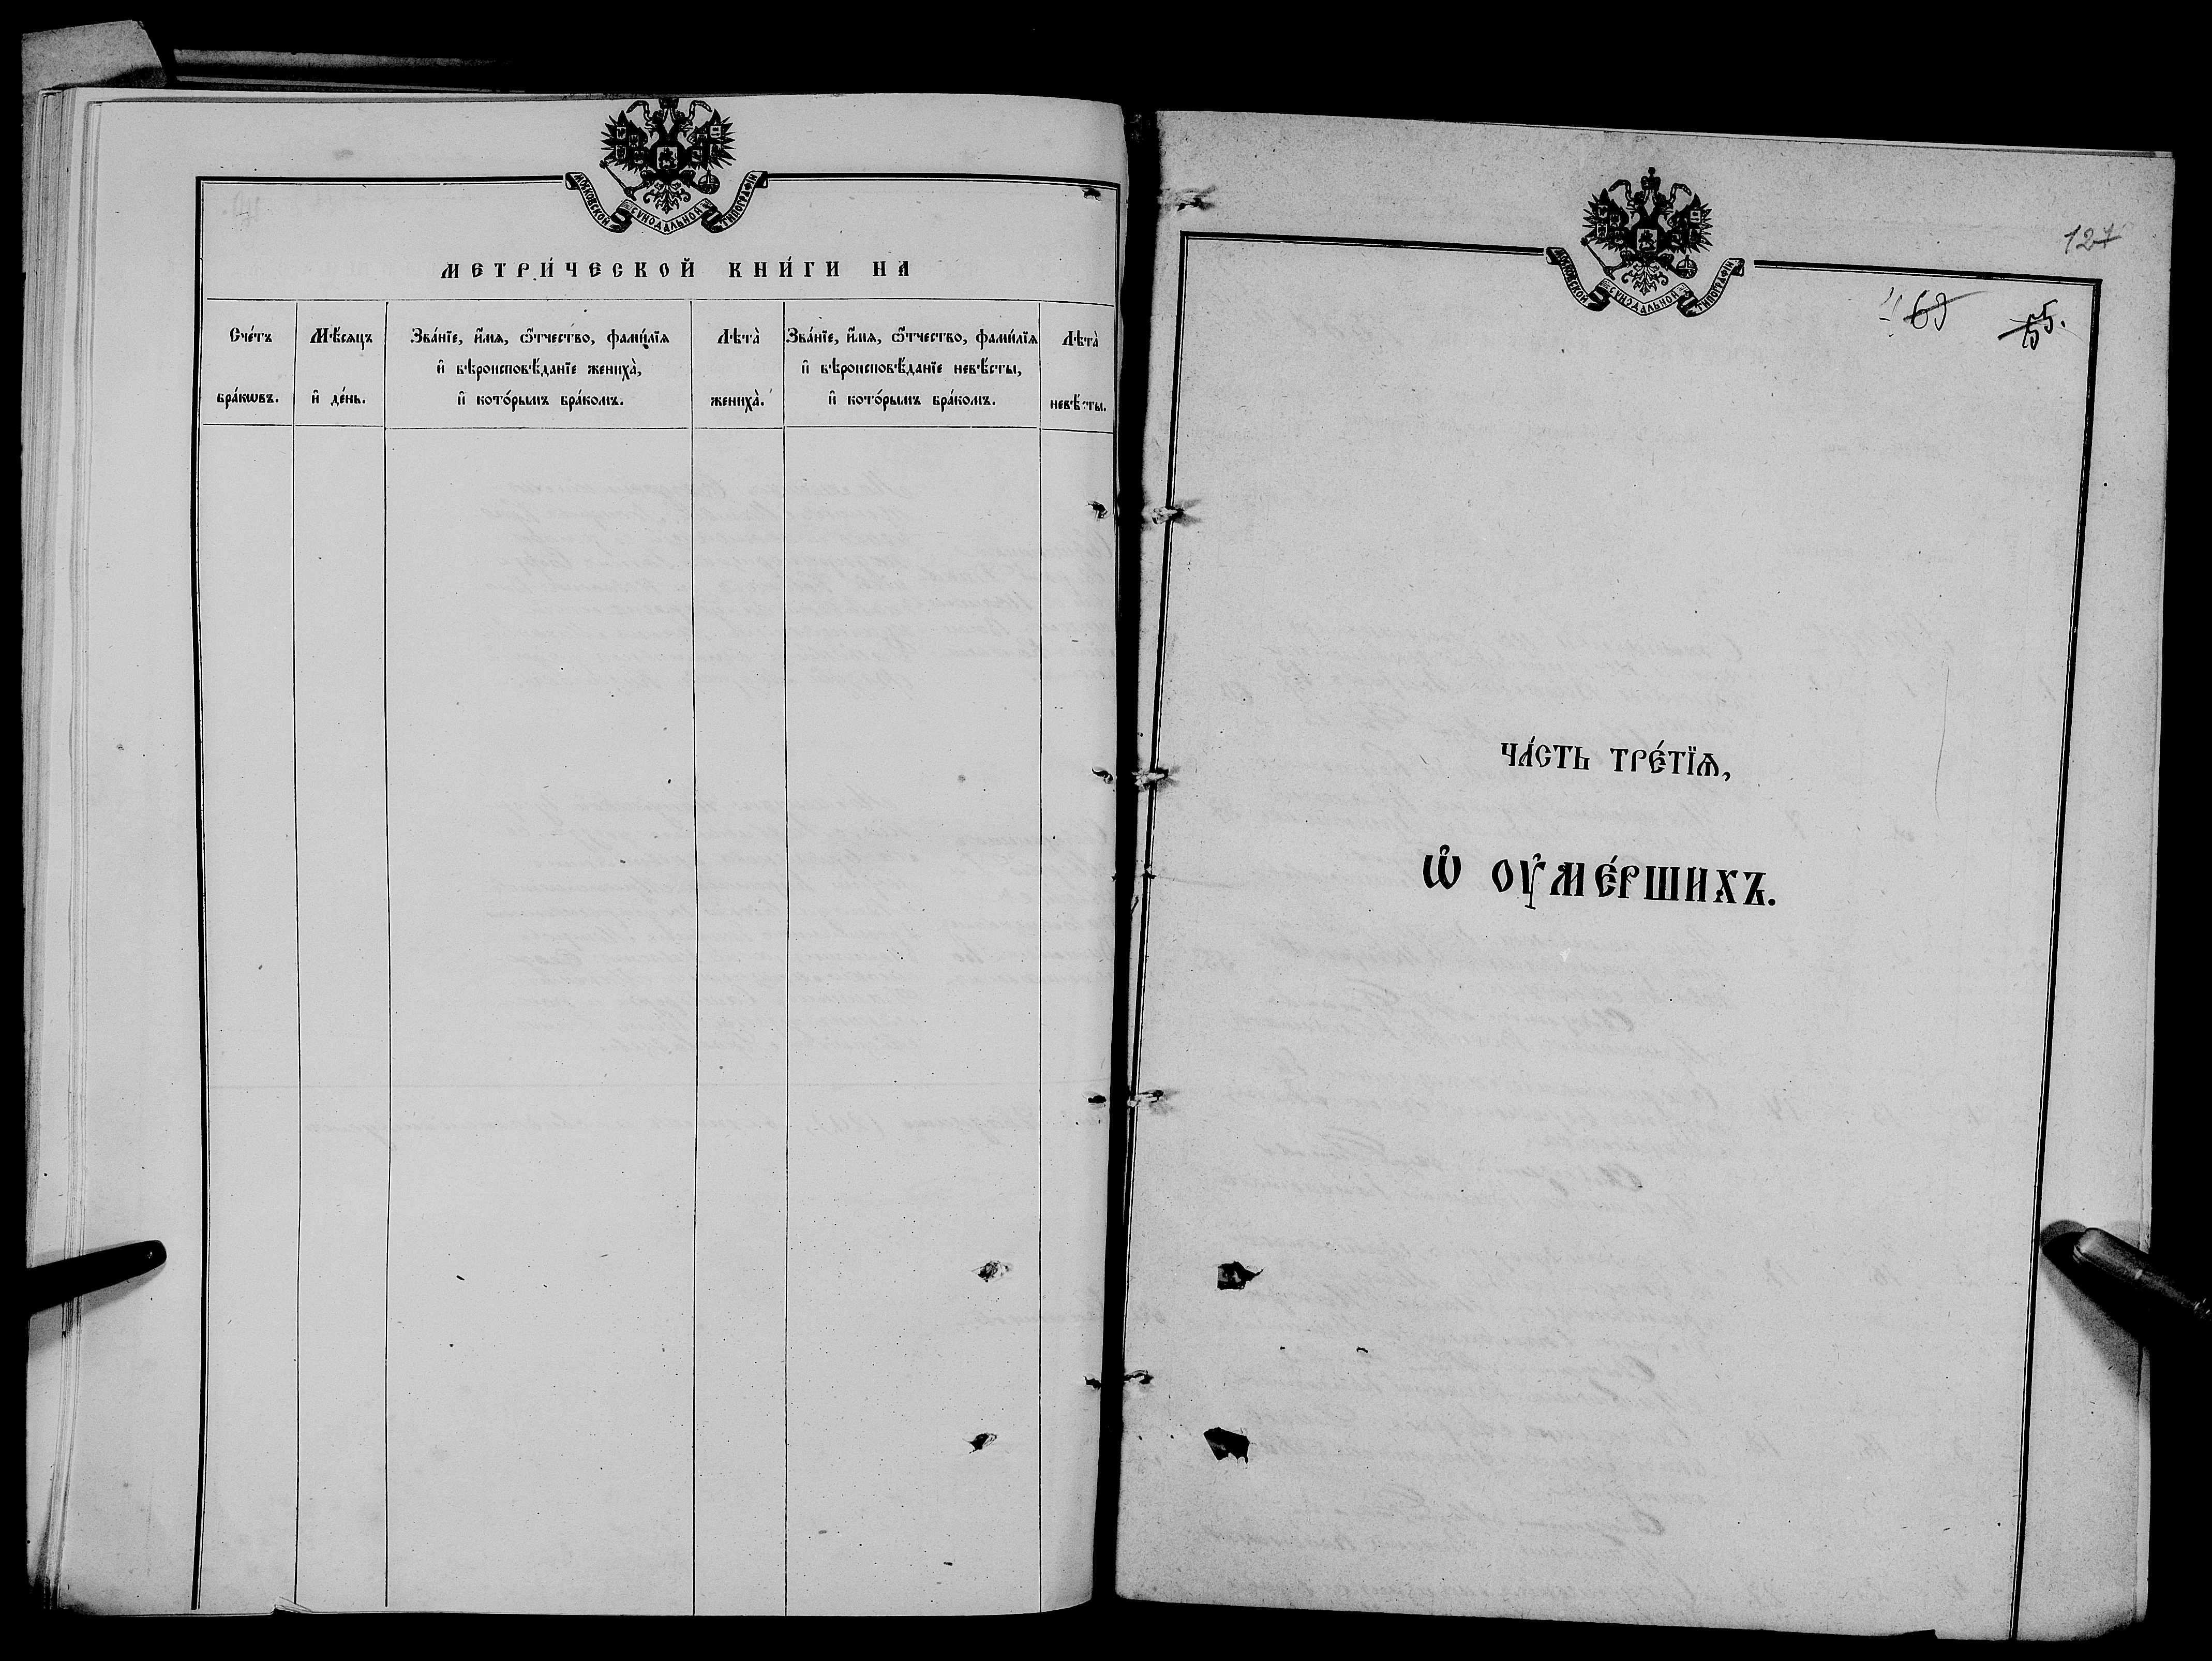 МОСКОВСКОЙ СѴНОДАЛЬНОЙ ТИПОГРАФІИ
МЕТРИ́ЧЕСКОЙ КНИ́ГИ НА
Сче́тъ бра́кѡвъ.
Мѣ́сяцъ и҆ де́нь.
Зва́нїе, и҆́мя, ѻ҆́тчество, фами́лїя
и҆ вѣроисповѣ́данїе жениха̀,
и҆ кото́рымъ бра́комъ.
Лѣта̀ жениха̀.
Зва́нїе, и҆́мя, ѻ҆́тчество, фами́лїя
и҆ вѣроисповѣ́данїе невѣ́сты,
и҆ кото́рымъ бра́комъ.
Лѣта̀ невѣ́сты.
МОСКОВСКОЙ СѴНОДАЛЬНОЙ ТИПОГРАФІИ
127
69
55.
ЧА́СТЬ ТРЕ́ТЇѦ,
Ѽ ОУ҆МЕ́РШИХЪ.